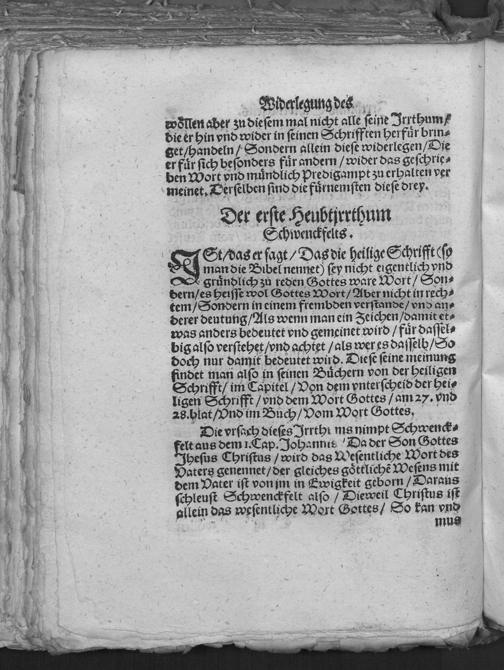 Widerlegung des
wöllen aber zu diesem mal nicht alle seine Irrthum/
die er hin vnd wider in seinen Schrifften herfür brin-
get/handeln/ Sondern allein diese widerlegen/Die
er für sich besonders für andern/wider das geschrie-
ben Wort vnd mündlich Predigampt zu erhalten ver
meinet. Derselben sind die fürnemsten diese drey.
Der erste Heubtjrrthum
Schwenckfelts.
ISt/das er sagt/ Das die heilige Schrifft (so
man die Bibel nennet) sey nicht eigentlich vnd
gründlich zu reden Gottes ware Wort/ Son-
dern/es heisse wol Gottes Wort/Aber nicht in rech-
tem/Sondern in einem frembden verstande/vnd an-
derer deutung/Als wenn man ein Zeichen/damit et-
was anders bedeutet vnd gemeinet wird/für dassel-
big also verstehet/vnd achtet/als wer es dasselb/So
doch nur damit bedeutet wird. Diese seine meinung
findet man also in seinen Büchern von der heiligen
Schrifft/im Capitel/Von dem vnterscheid der hei-
ligen Schrifft/vnd dem Wort Gottes/am 27. vnd
28.blat/Vnd im Buch/Vom Wort Gottes.
Die vrsach dieses nimpt Schwenck-
felt aus dem 1.Cap. Johannis/Da der Son Gottes
Jhesus Christus/wird das Wesentliche Wort des
Vaters genennet/der gleiches göttlichē Wesens mit
dem Vater ist von jm in Ewigkeit geborn/Daraus
schleust Schwenckfelt also/Dieweil Christus ist
allein das wesentliche Wort Gottes/ So kan vnd
mus